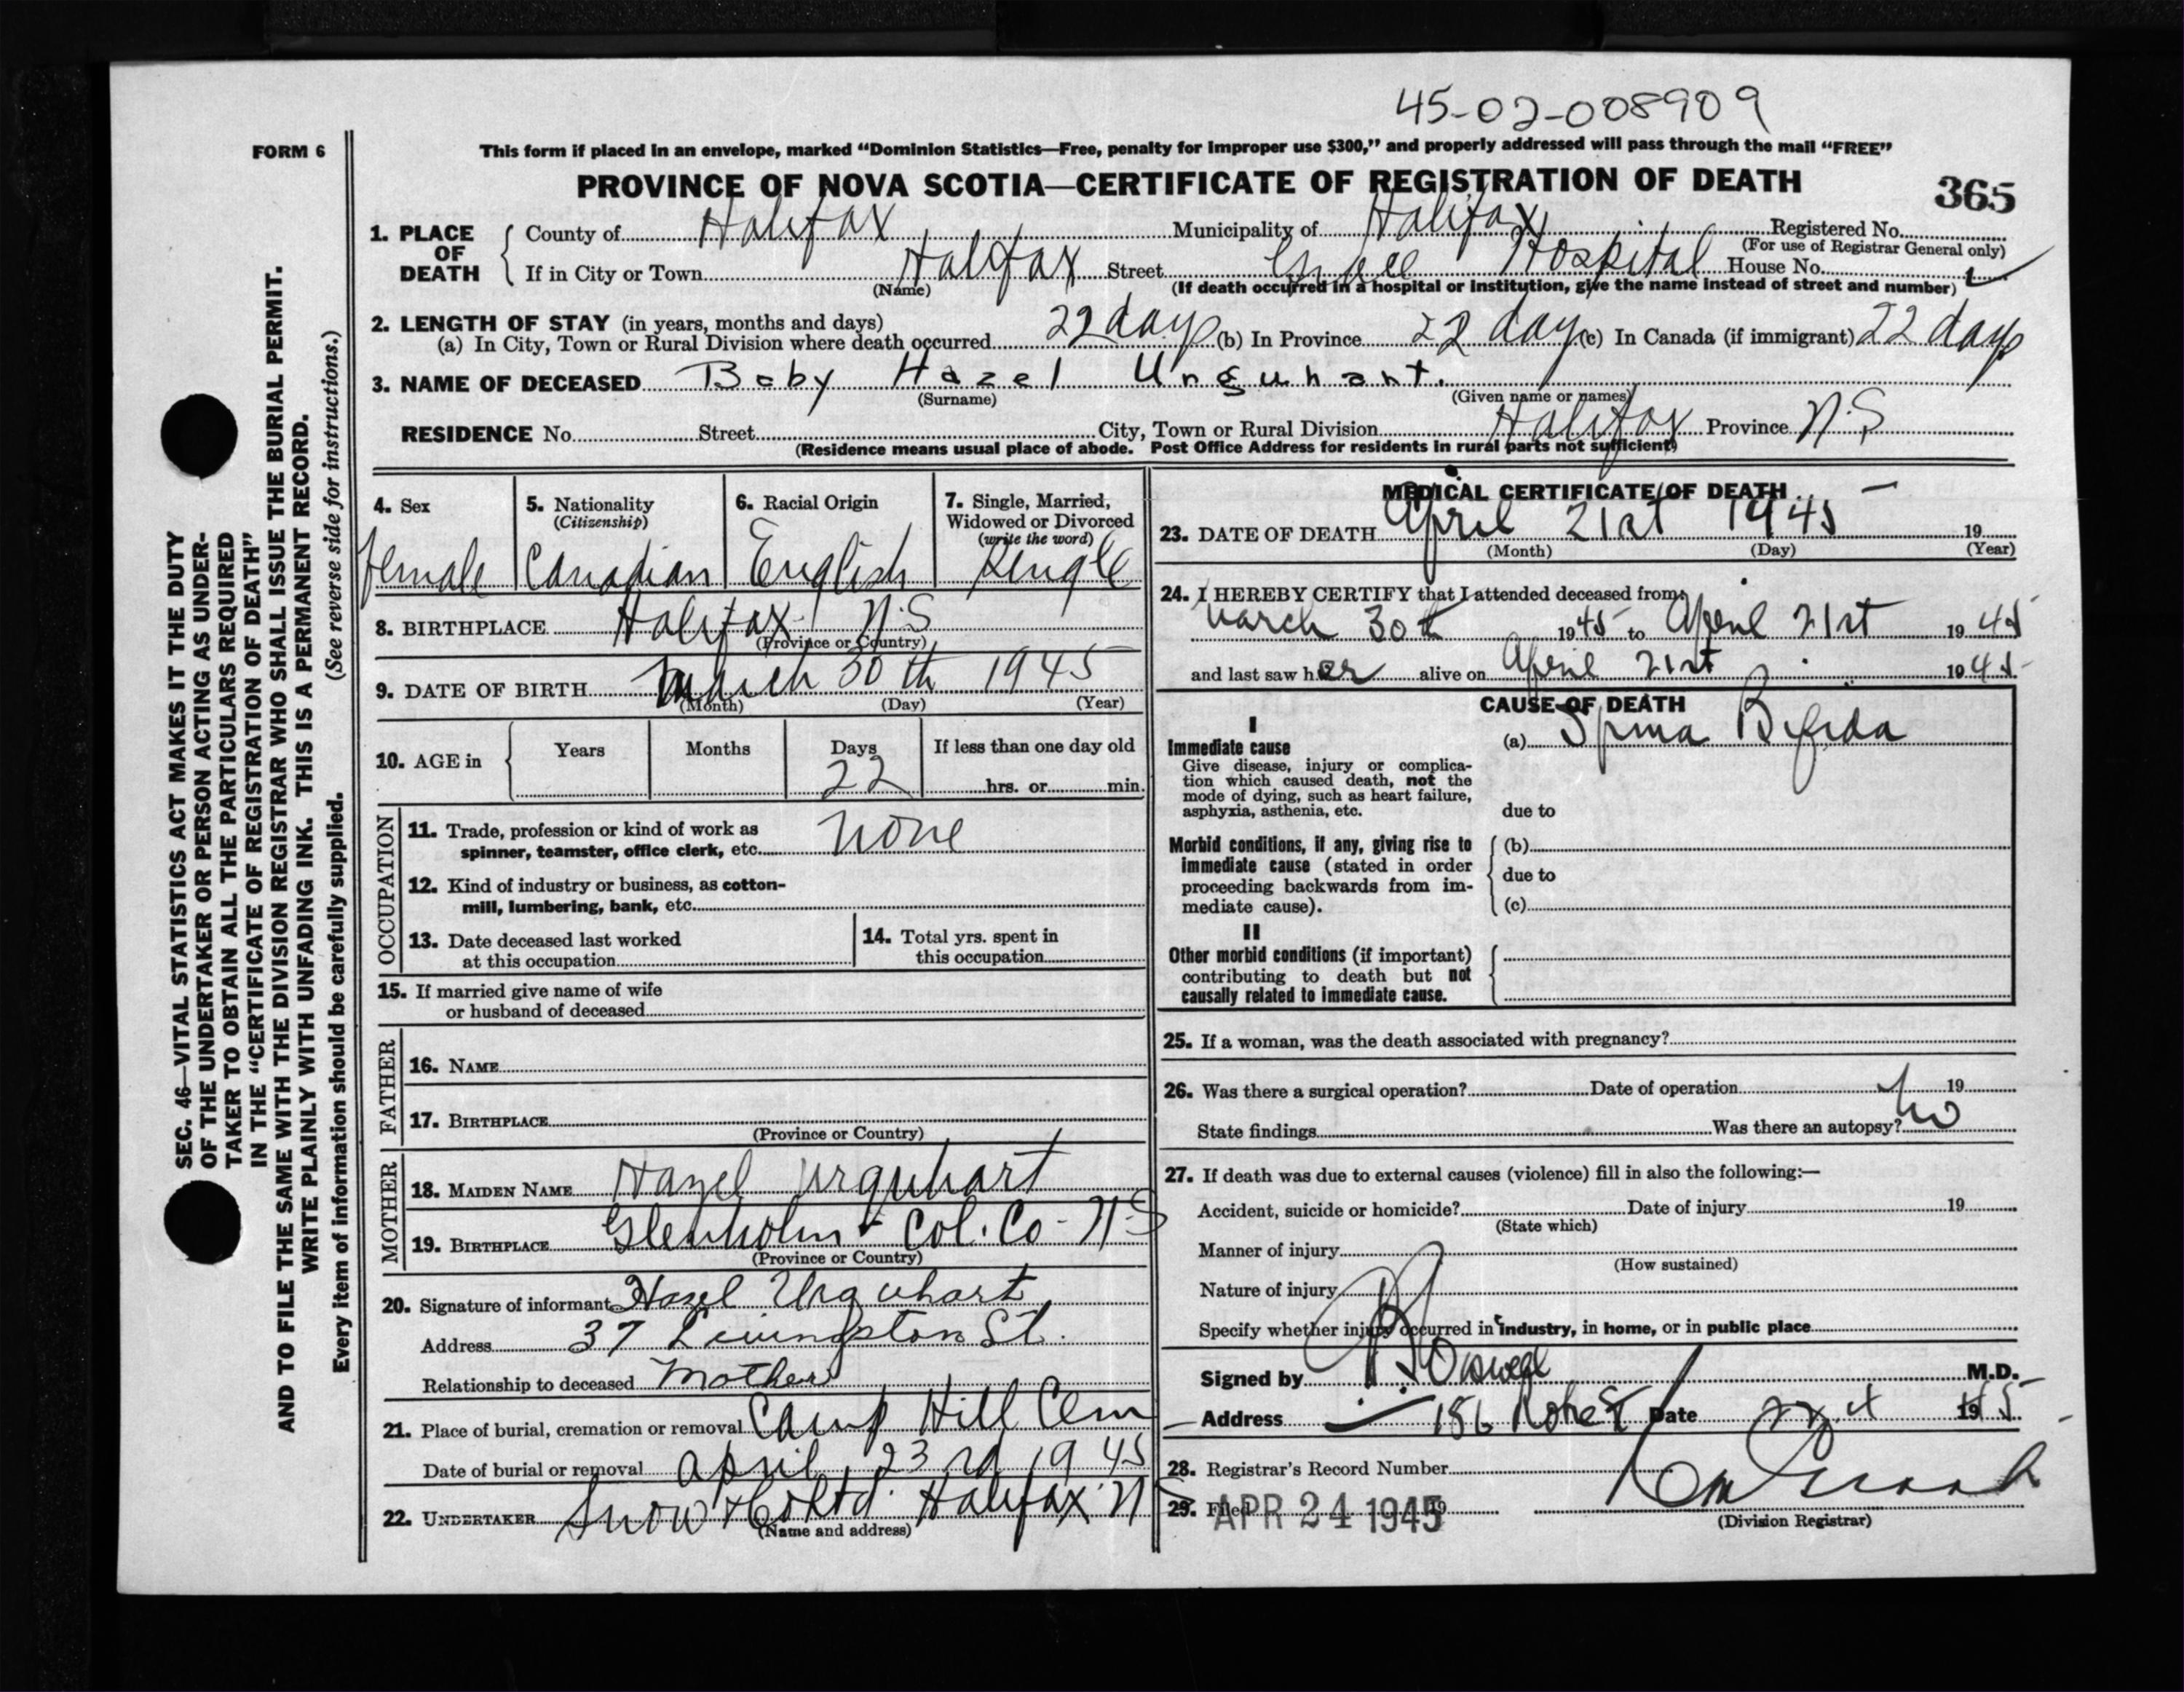 45-02-008909
FORM 6
This form if placed in an envelope, marked “Dominion Statistics—Free, penalty for improper use $300,” and properly addressed will pass through the mail “FREE”
PROVINCE OF NOVA SCOTIA—CERTIFICATE OF REGISTRATION OF DEATH
365
1. PLACE OF DEATH
County of Halifax Municipality of Halifax Registered No.
(For use of Registrar General only)
If in City or Town Halifax Street Hospital House No.
(Name) (If death occurred in a hospital or institution, give the name instead of street and number)
2. LENGTH OF STAY (in years, months and days)
(a) In City, Town or Rural Division where death occurred 22 days (b) In Province 22 days (c) In Canada (if immigrant) 22 days
3. NAME OF DECEASED Baby Hazel Unguhant.
(Surname) (Given name or names)
RESIDENCE No. Street City, Town or Rural Division Halifax Province N.S
(Residence means usual place of abode. Post Office Address for residents in rural parts not sufficient)
4. Sex Female
5. Nationality (Citizenship) Canadian
6. Racial Origin English
7. Single, Married, Widowed or Divorced (write the word) Single
8. BIRTHPLACE Halifax N.S
(Province or Country)
9. DATE OF BIRTH March 30th 1945
(Month) (Day) (Year)
10. AGE in Years Months Days 22 If less than one day old hrs. or min.
OCCUPATION
11. Trade, profession or kind of work as spinner, teamster, office clerk, etc. None
12. Kind of industry or business, as cotton-mill, lumbering, bank, etc.
13. Date deceased last worked at this occupation
14. Total yrs. spent in this occupation
15. If married give name of wife or husband of deceased
FATHER
16. NAME
17. BIRTHPLACE
(Province or Country)
MOTHER
18. MAIDEN NAME Hazel Urquhart
19. BIRTHPLACE Glenholm Col. Co - N-S
(Province or Country)
20. Signature of informant Hazel Urquhart
Address 37 Livingston St.
Relationship to deceased Mother
21. Place of burial, cremation or removal Camp Hill Cem
Date of burial or removal April 23rd 1945
22. UNDERTAKER Snow & Co Ltd. Halifax N S
(Name and address)
MEDICAL CERTIFICATE OF DEATH
23. DATE OF DEATH April 21st 1945 19
(Month) (Day) (Year)
24. I HEREBY CERTIFY that I attended deceased from:
March 30th 1945 to April 21st 1945
and last saw her alive on April 21st 1945
CAUSE OF DEATH
I
Immediate cause
Give disease, injury or complica-
tion which caused death, not the
mode of dying, such as heart failure,
asphyxia, asthenia, etc.
(a) Spina Bifida
due to
Morbid conditions, if any, giving rise to
immediate cause (stated in order
proceeding backwards from im-
mediate cause).
(b)
due to
(c)
II
Other morbid conditions (if important)
contributing to death but not
causally related to immediate cause.
25. If a woman, was the death associated with pregnancy?
26. Was there a surgical operation? Date of operation 19
State findings Was there an autopsy? No
27. If death was due to external causes (violence) fill in also the following:—
Accident, suicide or homicide? Date of injury 19
(State which)
Manner of injury
(How sustained)
Nature of injury
Specify whether injury occurred in industry, in home, or in public place
Signed by M.D.
Address 186 Date 1945
28. Registrar's Record Number
29. Filed APR 24 1945 19
(Division Registrar)
SEC. 46—VITAL STATISTICS ACT MAKES IT THE DUTY
OF THE UNDERTAKER OR PERSON ACTING AS UNDER-
TAKER TO OBTAIN ALL THE PARTICULARS REQUIRED
IN THE “CERTIFICATE OF REGISTRATION OF DEATH”
AND TO FILE THE SAME WITH THE DIVISION REGISTRAR WHO SHALL ISSUE THE BURIAL PERMIT.
WRITE PLAINLY WITH UNFADING INK. THIS IS A PERMANENT RECORD.
Every item of information should be carefully supplied. (See reverse side for instructions.)